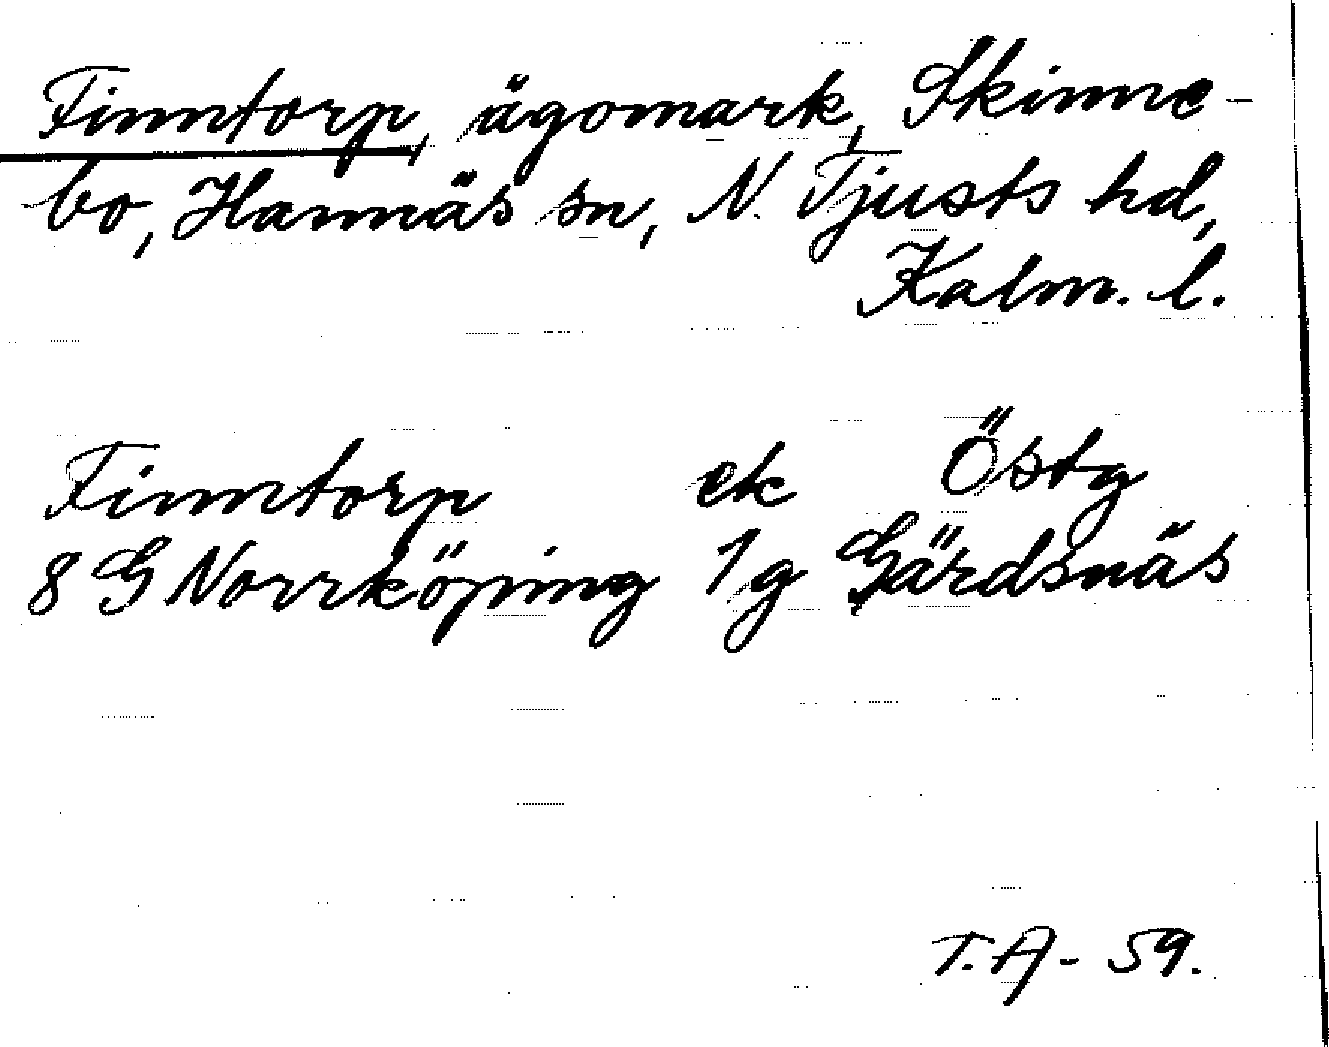 Finntorp, ägomark, Skinne-
bo, Hannäs sn, N. Tjusts hd,
Kalm. l.
Finntorp ek Östg
8 G Norrköping 1 g Gärdsnäs
T.A- 59.